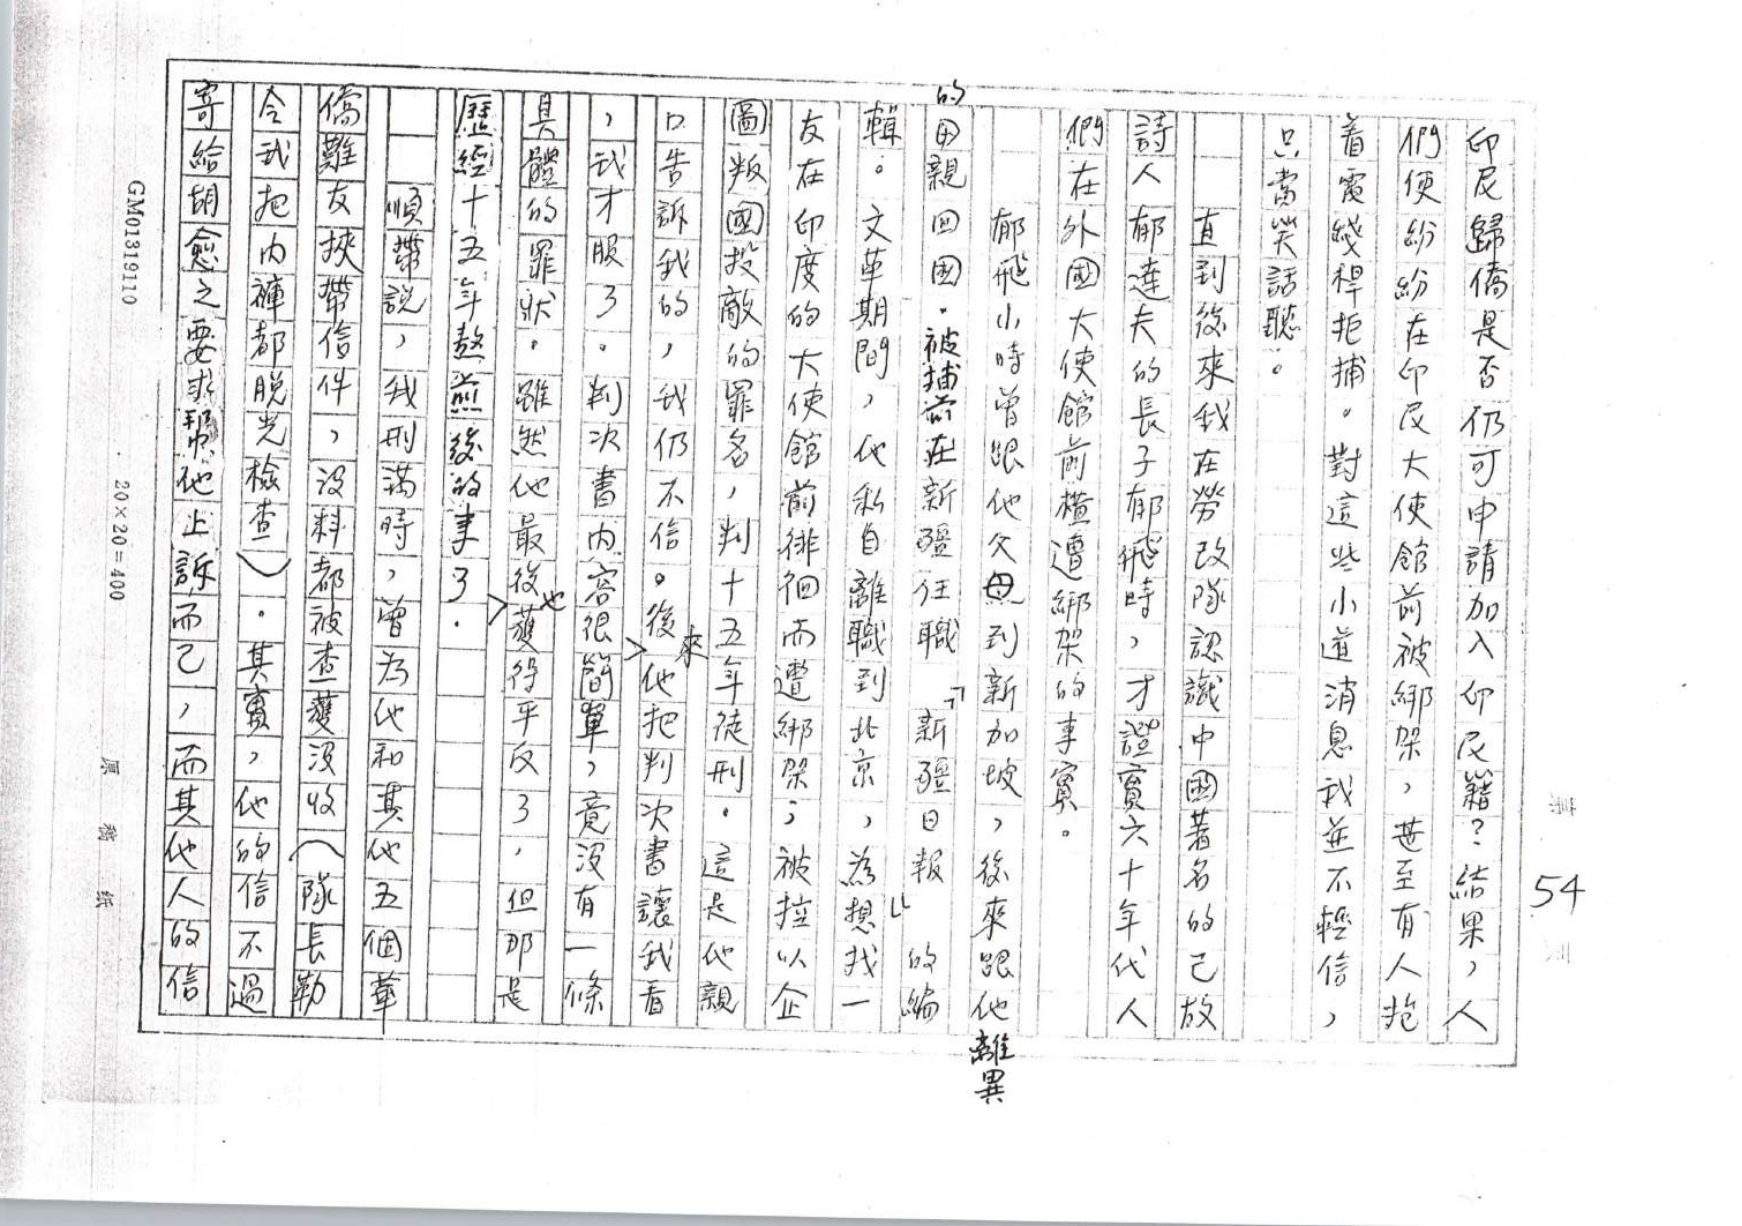 54
印尼歸僑是否仍可申請加入印尼籍?結果,人
們便紛紛在印尼大使館前被綁架,甚至有人抱
着電綫桿拒捕。對這些小道消息我並不輕信,
只當笑話聽。
直到後來我在勞改隊認識中國著名的已故
詩人郁達夫的長子郁飛時,才證實六十年代人
們在外國大使館前檟遭綁架的事實。
郁飛小時曾跟他父母到新加坡,後來跟他離異
的母親回國。被捕前在新疆任職『新疆日報』的編
輯。文革期間,他私自離職到北京,為想找一
友在印度的大使館前徘徊而遭綁架;被控以企
圖叛國投敵的罪名,判十五年徒刑。這是他親
口告訴我的,我仍不信。後來他把判次書讓我看
,我才服了。判次書内容很簡單,竟沒有一條
具體的罪狀。雖然他最後也獲得平反了,但那是
歷經十五年熬煎後的事了。
順帶説,我刑滿時,曾为他和其他五個華
僑難友挾帶信件,没料都被查獲没收(隊長勒
令我把内褲都脱光檢查)。其實,他的信不過
寄給胡愈之要求幫他上訴而已,而其他人的信
GM01319110
20×20=400
原稿紙